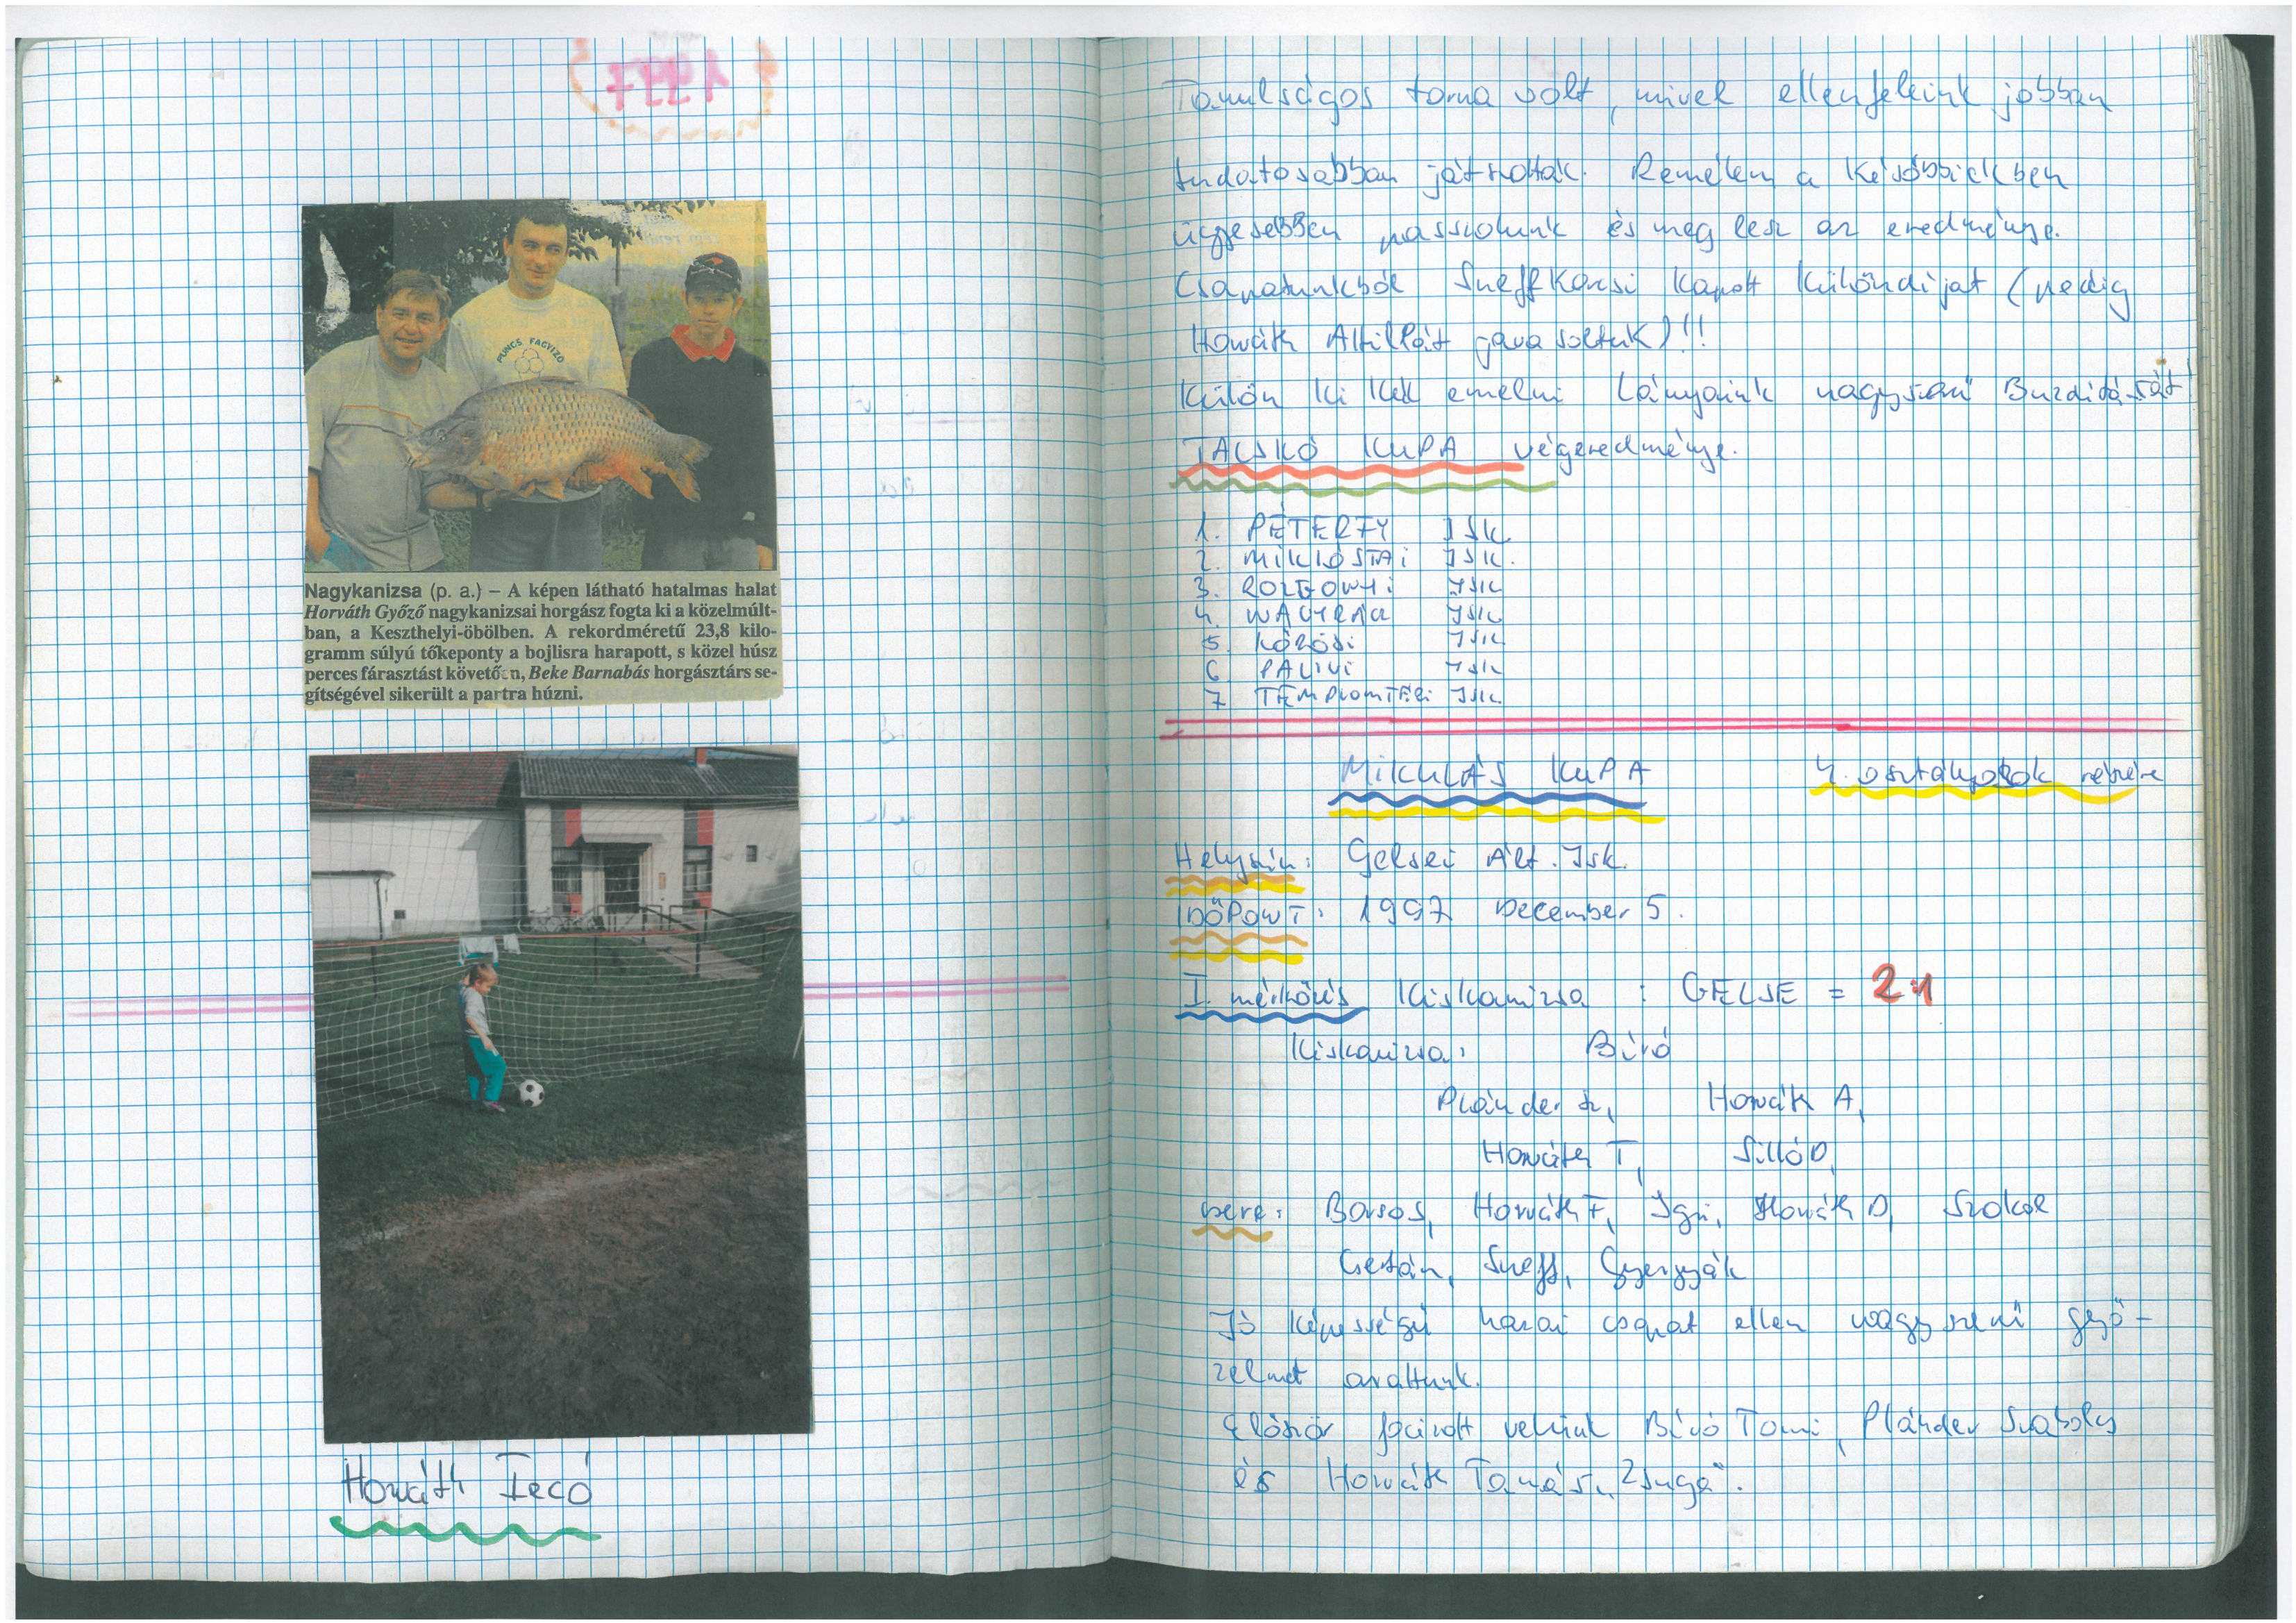 1997
PUNCS FAGYIZÓ
Nagykanizsa (p. a.) – A képen látható hatalmas halat
Horváth Győző nagykanizsai horgász fogta ki a közelmúlt-
ban, a Keszthelyi-öbölben. A rekordméretű 23,8 kilo-
gramm súlyú tőkeponty a bojlisra harapott, s közel húsz
perces fárasztást követően, Beke Barnabás horgásztárs se-
gítségével sikerült a partra húzni.
Horváth Tecó
Tanulságos torna volt, mivel ellenfeleink jobban
tudatosabban játszottak. Remélem a későbbiekben
ügyesebben passzolunk és meg lesz az eredménye.
Csapatunkból Sneff Karcsi kapott különdíjat (pedig
Horváth Attillát javasoltuk)!!
Külön ki kell emelni Lányaink nagyszerű Buzdítását
TACSKÓ KUPA végeredménye.
1. PÉTERFY ISK.
2. MIKLÓSFAI ISK.
3. ROZGONYI ISK
4. ISK
5. KŐRÖSI ISK
6 PÁLINI ISK
7 TEMPLOMTÉRI ISK.
MIKULÁS KUPA 4. osztályosok részére
Helyszín: Gelsei Ált. Isk.
IDŐPONT: 1997 December 5.
I. mérkőzés Kiskanizsa : GELSE = 2:1
Kiskanizsa: Bíró
Plánder Sz, Horváth A,
Horváth T, Silló D,
csere: Borsos, Horváth F, Igri, Horváth D, Szokol
Cseszán, Sneff, Gyergyák
Jó képességű hazai csapat ellen nagyszerű győ-
zelmet arattunk.
Először focizott velünk Bíró Tomi, Plánder Szabolcs
és Horváth Tamás „Zsuga".